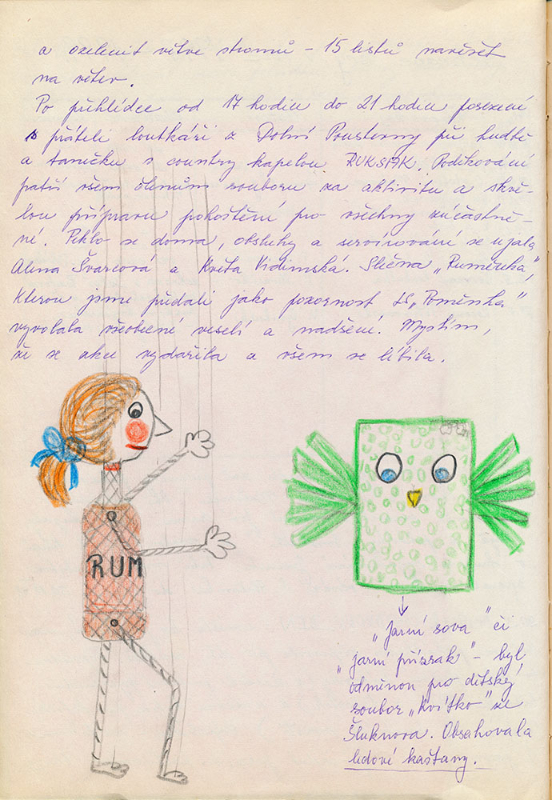 a ozelenit větve stromů - 15 listů navěset
na větev.
Po přehlídce od 17 hodin do 21 hodin posezení
s přáteli loutkáři z Dolní Poustevny při hudbě
a tanečku s country kapelou RUKSAK. Poděkování
patří všem členům souboru za aktivitu a skvě-
lou přípravu pohoštění pro všechny zúčastně-
né. Peklo se doma, obsluhy a servírování se ujala
Alena Švarcová a Květa Vidimská. Slečna „Ruměnka",
kterou jsme předali jako pozornost LS „Poměnka"
vyvolala všeobecné veselí a nadšení. Myslím,
že se akce vydařila a všem se líbila.
RUM
„Jarní sova" či
„jarní přízrak" - byl
odměnou pro dětský
soubor „Kvítko" ze
Šluknova. Obsahovala
ledové kaštany.